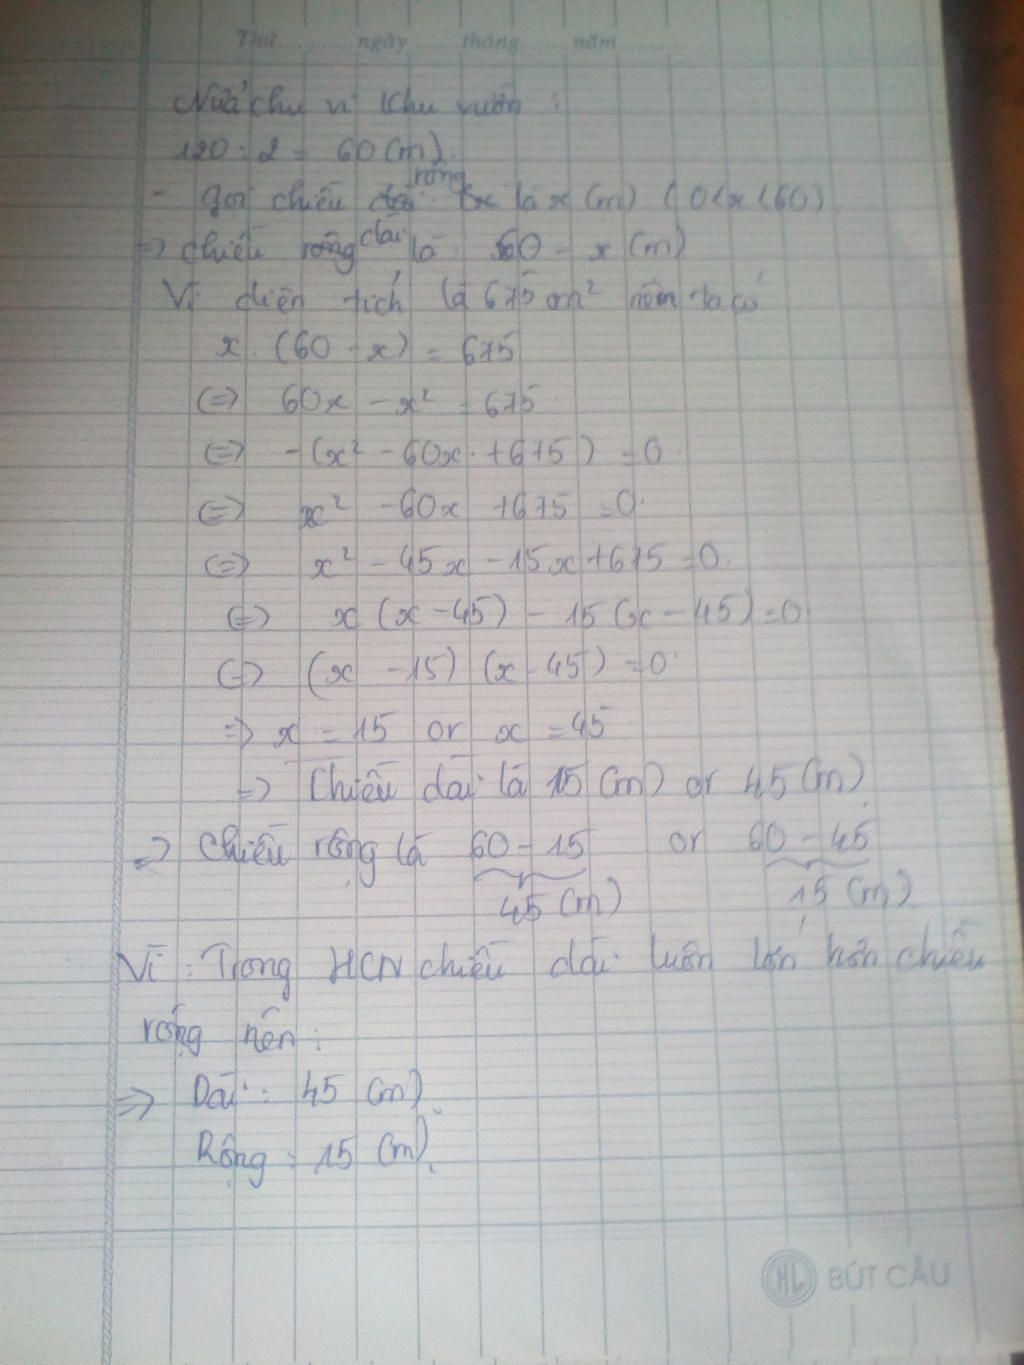 Thứ.............ngày........tháng........năm........
Nửa chu vi khu vườn :
120 : 2 = 60 (m).
rộng
- gọi chiều dài là x (m) (0<x<60)
dài
=> chiều rộng là 60 - x (m)
Vì diện tích là 675 m² nên ta có
x. (60 - x) = 675
<=> 60x - x² = 675
<=> -(x² - 60x + 675) = 0
<=> x² - 60x + 675 = 0.
<=> x² - 45x - 15x + 675 = 0.
<=> x (x - 45) - 15 (x - 45) = 0
<=> (x - 15) (x - 45) = 0
=> x = 15 or x = 45
=> Chiều dài là 15 (m) or 45 (m)
=> Chiều rộng là 60 - 15 or 60 - 45
45 (m) 15 (m)
Vì : Trong HCN chiều dài luôn lớn hơn chiều
rộng nên :
=> Dài : 45 (m)
Rộng : 15 (m).
HL BÚT CÂU